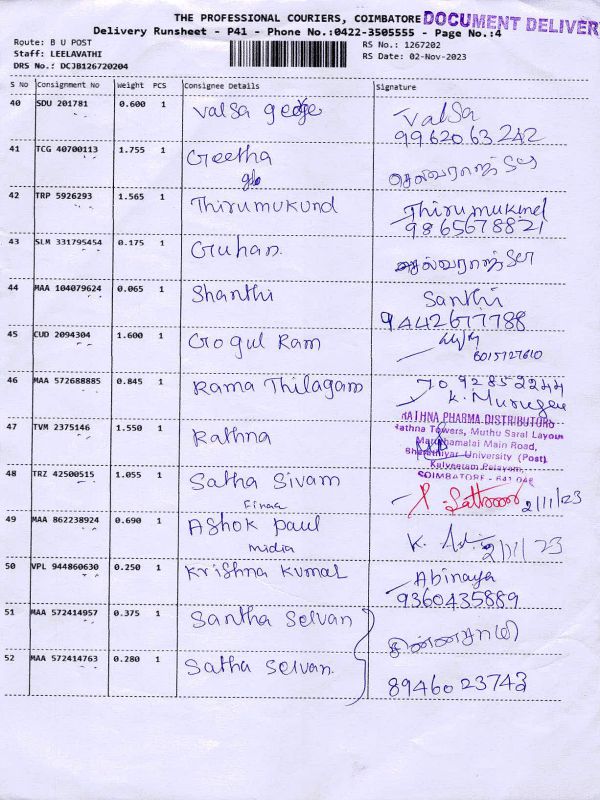 THE PROFESSIONAL COURIERS, COIMBATORE DOCUMENT DELIVERY
Delivery Runsheet - P41 - Phone No.:0422-3505555 - Page No.:4
Route: B U POST RS No.: 1267202
Staff: LEELAVATHI RS Date: 02-Nov-2023
DRS No.: DCJB126720204
S No Consignment No Weight PCS Consignee Details Signature
40 SDU 201781 0.600 1 Valsa george Valsa
9962063242
41 TCG 40700113 1.755 1 Geetha செல்வராஜ்
42 TRP 5926293 1.565 1 Thirumukund Thirumukind
9865678821
43 SLM 331795454 0.175 1 Guhan. செல்வராஜ்
44 MAA 104079624 0.065 1 Shanthi Santhi
9442677788
45 CUD 2094304 1.600 1 Gogul Ram
6015727610
46 MAA 572688885 0.845 1 Rama Thilagam 7092852244
K. Murugan
47 TVM 2375146 1.550 1 Rathna RATHNA PHARMA DISTRIBUTORS
Rathna Towers, Muthu Saral Layout
Maruthamalai Main Road,
Bharathiyar University (Post)
Kalveeram Palayam,
COIMBATORE - 641 046
48 TRZ 42500515 1.055 1 Satha Sivam 2/11/23
49 MAA 862238924 0.690 1 Ashok Paul K. 2/11/23
midia
50 VPL 944860630 0.250 1 Krishna Kumal Abinaya
9360435889
51 MAA 572414957 0.375 1 Santha Selvan சின்னசாமி
52 MAA 572414763 0.280 1 Satha Selvan. 8946023743